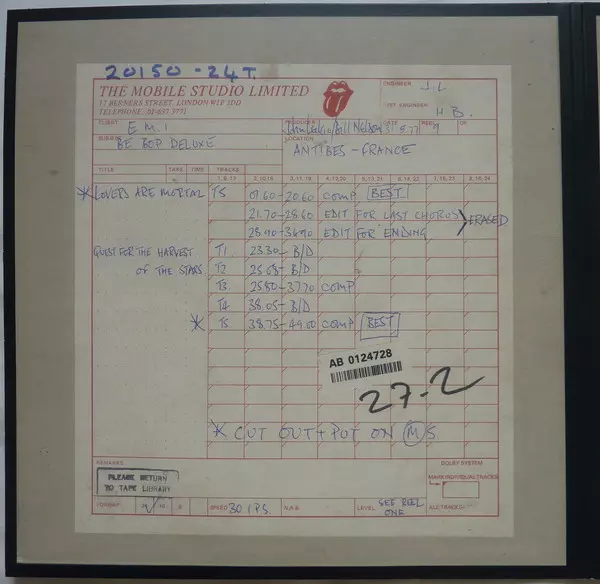 20150-24T.
THE MOBILE STUDIO LIMITED
17 BERNERS STREET, LONDON W1P 3DD
TELEPHONE: 01-637 3771
ENGINEER J.L.
ENGINEER H B.
CLIENT E.M.I.
PRODUCER John Leckie/Bill Nelson
31.5.77
REEL 9
OF
BE BOP DELUXE
LOCATION ANTIBES - FRANCE
TITLE TAKE TIME TRACKS
1, 9, 17 2, 10, 18 3, 11, 19 4, 12, 20 5, 13, 21 6, 14, 22 7, 15, 23 8, 16, 24
* LOVERS ARE MORTAL T5 01.60-20.60 COMP BEST
21.70-28.60 EDIT FOR LAST CHORUS
28.90-34.90 EDIT FOR ENDING
ERASED
QUEST FOR THE HARVEST T1 23.30- B/D
OF THE STARS T2 25.05- B/D
T3 25.50-37.70 COMP
T4 38.05- B/D
* T5 38.75-49.00 COMP BEST
AB 0124728
27-2
* CUT OUT + PUT ON M S
REMARKS
DOLBY SYSTEM
PLEASE RETURN
TO TAPE LIBRARY
MARK INDIVIDUAL TRACKS
FORMAT 24 16 8
SPEED 30 IPS
N.A.B.
LEVEL SEE REEL
ONE
ALL TRACKS